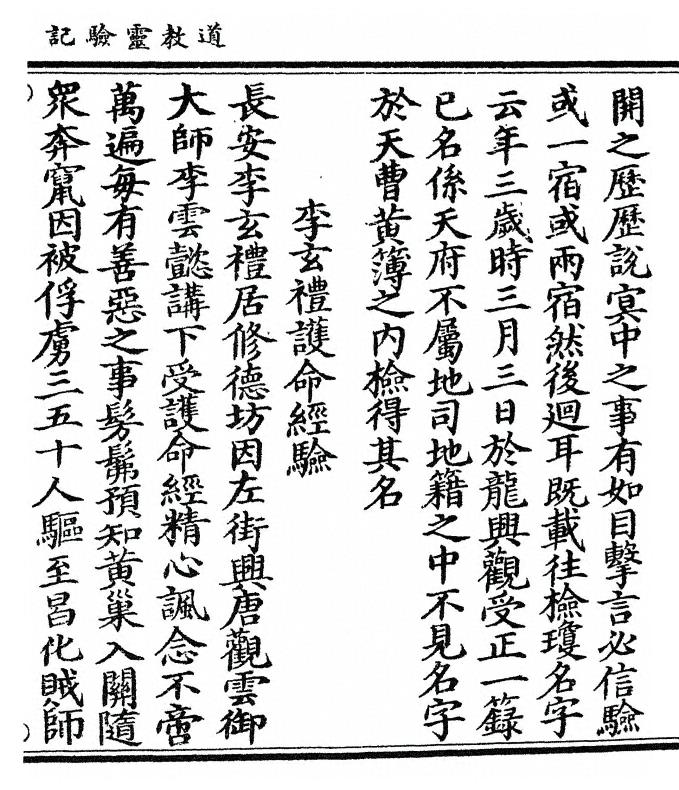 道教靈驗記
開之歷歷說冥中之事有如目擊言必信驗
或一宿或兩宿然後迴耳既載往檢瓊名字
云年三歲時三月三日於龍興觀受正一籙
已名係天府不屬地司地籍之中不見名字
於天曹黃簿之內檢得其名
李玄禮護命經驗
長安李玄禮居修德坊因左街興唐觀雲御
大師李雲懿講下受護命經精心諷念不啻
萬遍每有善惡之事髣髴預知黃巢入關隨
眾奔竄因被俘虜三五十人驅至昌化賊師